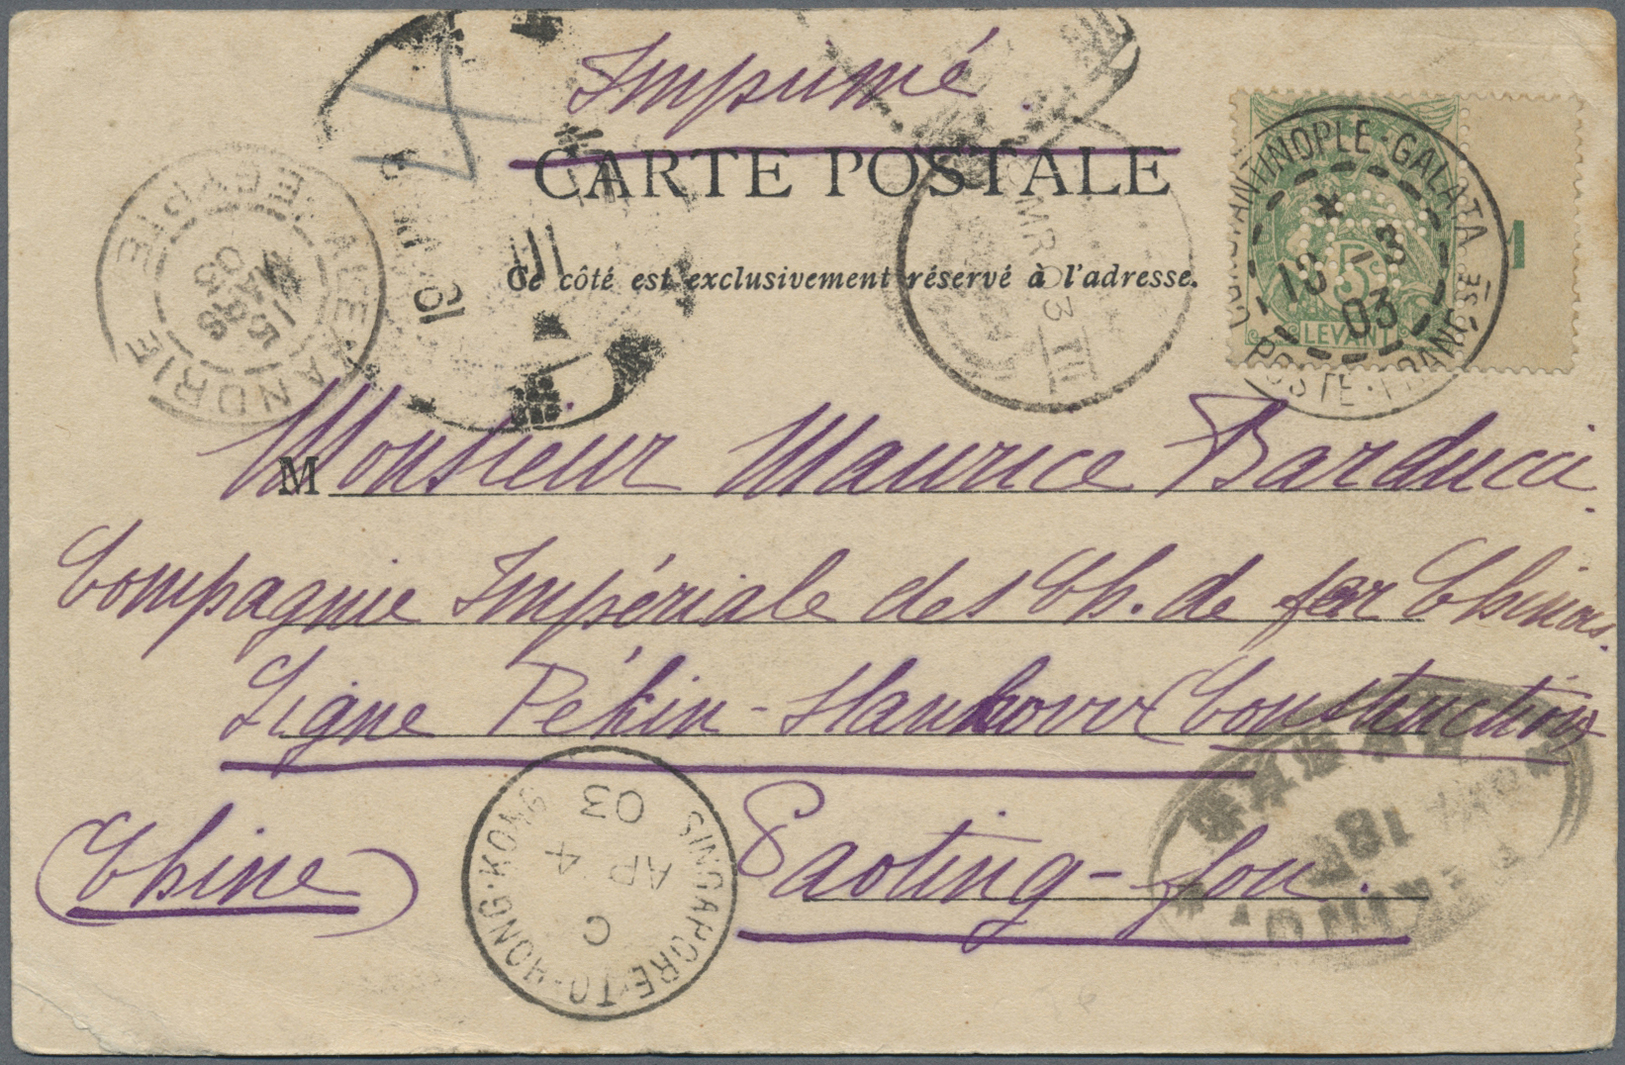 Imprimé
CARTE POSTALE
Ce côté est exclusivement réservé à l'adresse.
CONSTANTINOPLE-GALATA
* 13 -3 03
POSTE FRANÇSE
5
LEVANT
1
ALEXANDRIE
EGYPTE
15 MARS 03
MR 03
III
M Monsieur Maurice Barducci.
Compagnie Impériale des Ch. de fer Chinois.
Ligne Pékin-Hankow (Construction)
(Chine) Paoting-fou.
SINGAPORE-TO-HONG-KONG
C
AP 4
03
18